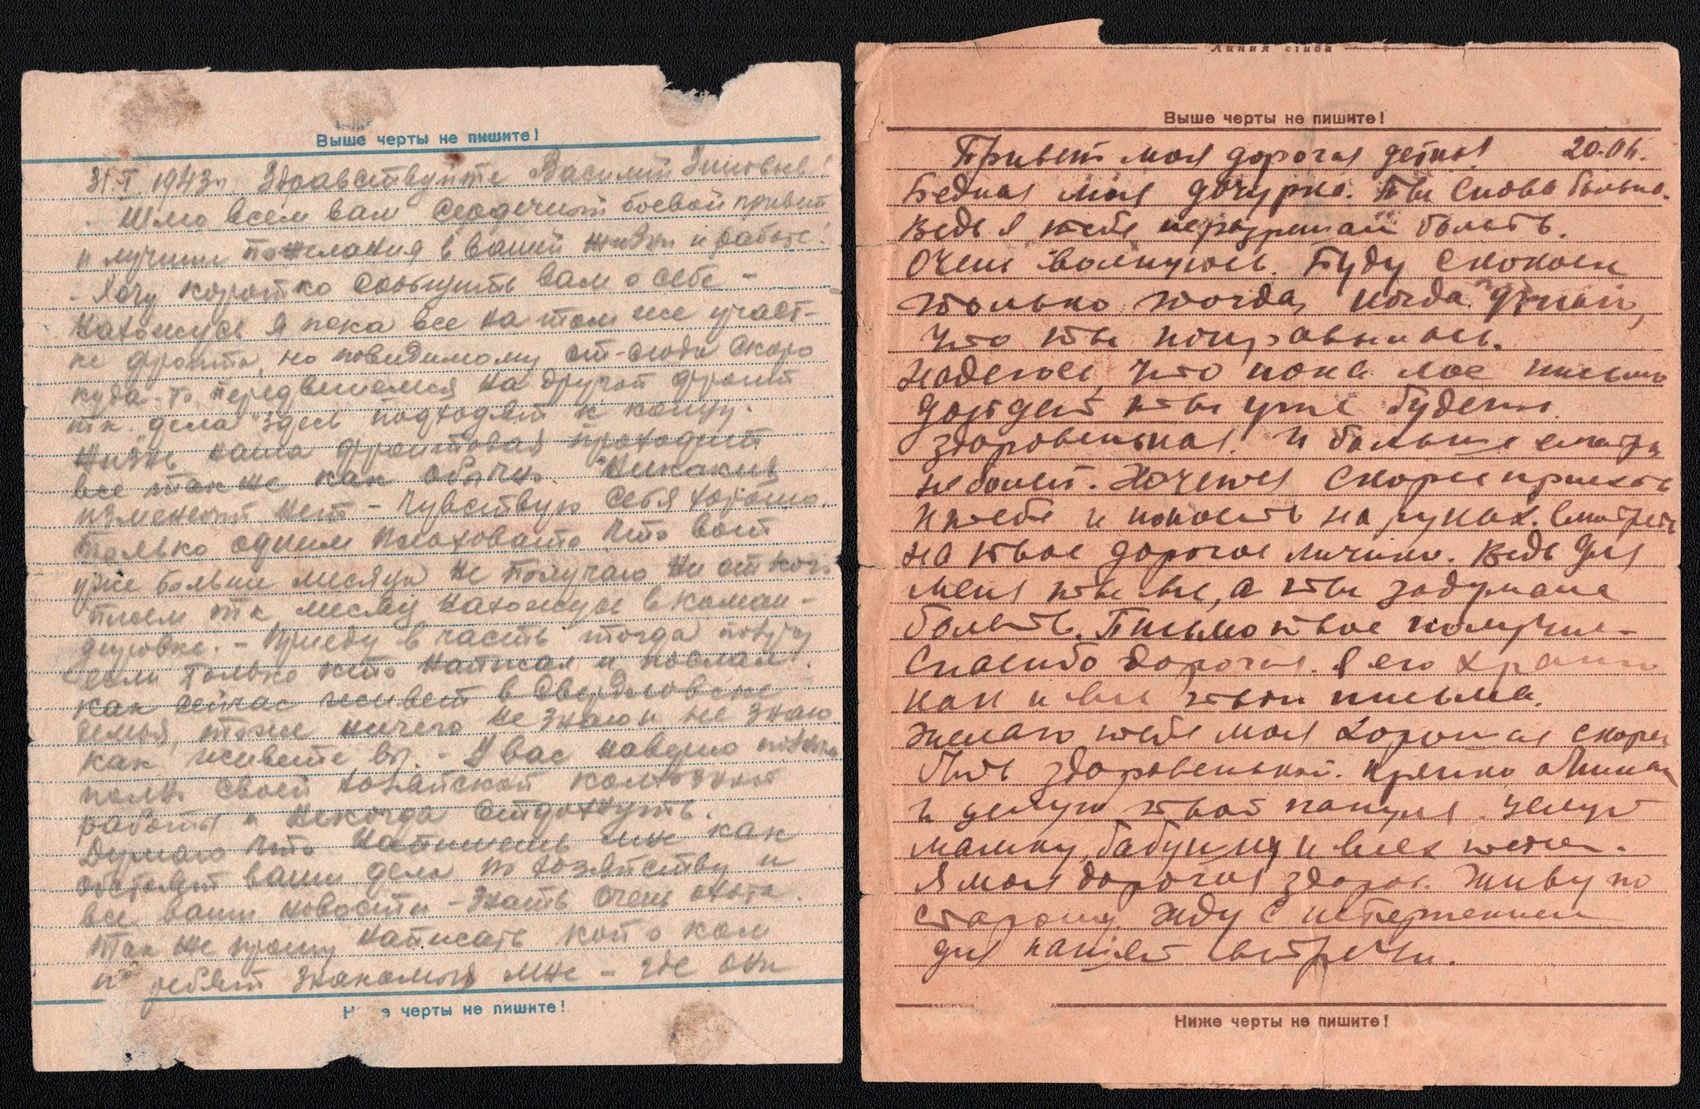 Выше черты не пишите!
31.I.1943г. Здравствуйте Василий
Шлю всем вам сердечный боевой привет
и лучшие пожелания в вашей жизни и работе!
- Хочу коротко сообщить вам о себе -
нахожусь я пока все на том же участ-
ке фронта, но повидимому от-сюда скоро
куда-то передвигаемся на другой фронт
т.к. дела здесь подходят к концу.
Жизнь наша фронтовая проходит
все так же как обычно. Никаких
изменений нет - чувствую себя хорошо.
Только одним плоховато что вот
уже больше месяца не получаю ни от кого
писем т.к. месяц нахожусь в коман-
дировке. - Приеду в часть тогда получу
если только кто написал и послал.
как сейчас живет в Свердловске
семья, тоже ничего не знаю и не знаю
как живете вы. - У вас наверно
полно своей хозяйской колхозной
работы и некогда отдохнуть.
Думаю что напишешь мне как
обстоят ваши дела по хозяйству и
все ваши новости - знать очень охота.
Так же прошу написать кой о ком
из ребят знакомых мне - где они
Ниже черты не пишите!
Линия сгиба
Выше черты не пишите!
Привет моя дорогая детка! 20.06.
Бедная моя дочурка. Ты снова больна.
Ведь я тебе не разрешал болеть.
Очень волнуюсь. Буду спокоен
только тогда, когда узнаю,
что ты поправилась.
Надеюсь, что пока мое письмо
дойдет ты уже будешь
здоровенькая. И больше смотри
не болей. Хочется скорее приехать
к тебе и носить на руках. Смотреть
на твое дорогое личико. Ведь для
меня ты все, а ты задумала
болеть. Письмо твое получил -
спасибо дорогая. Я его храню
как и все твои письма.
Желаю тебе моя хорошая скорей
быть здоровенькой. Крепко обнимаю
и целую твой папуля. Целуй
мамину, бабушку и всех
Я моя дорогая здоров. Живу по
старому. Жду с нетерпением
дня нашей встречи.
Ниже черты не пишите!